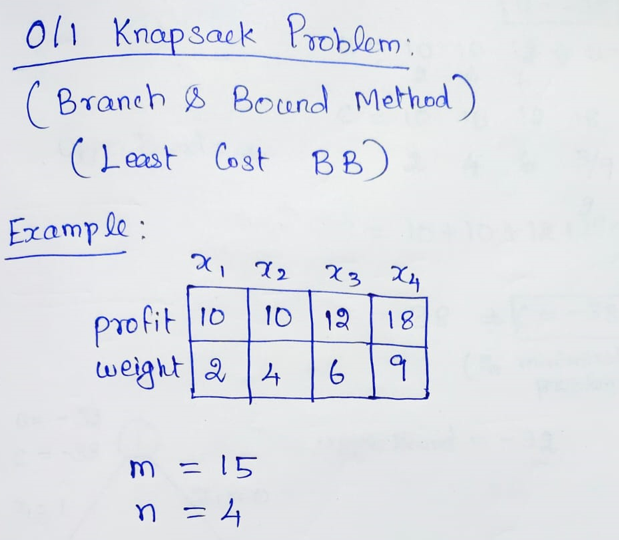 0/1 Knapsack Problem:
(Branch & Bound Method)
(Least Cost BB)
Example:
x1 x2 x3 x4
profit 10 10 12 18
weight 2 4 6 9
m = 15
n = 4